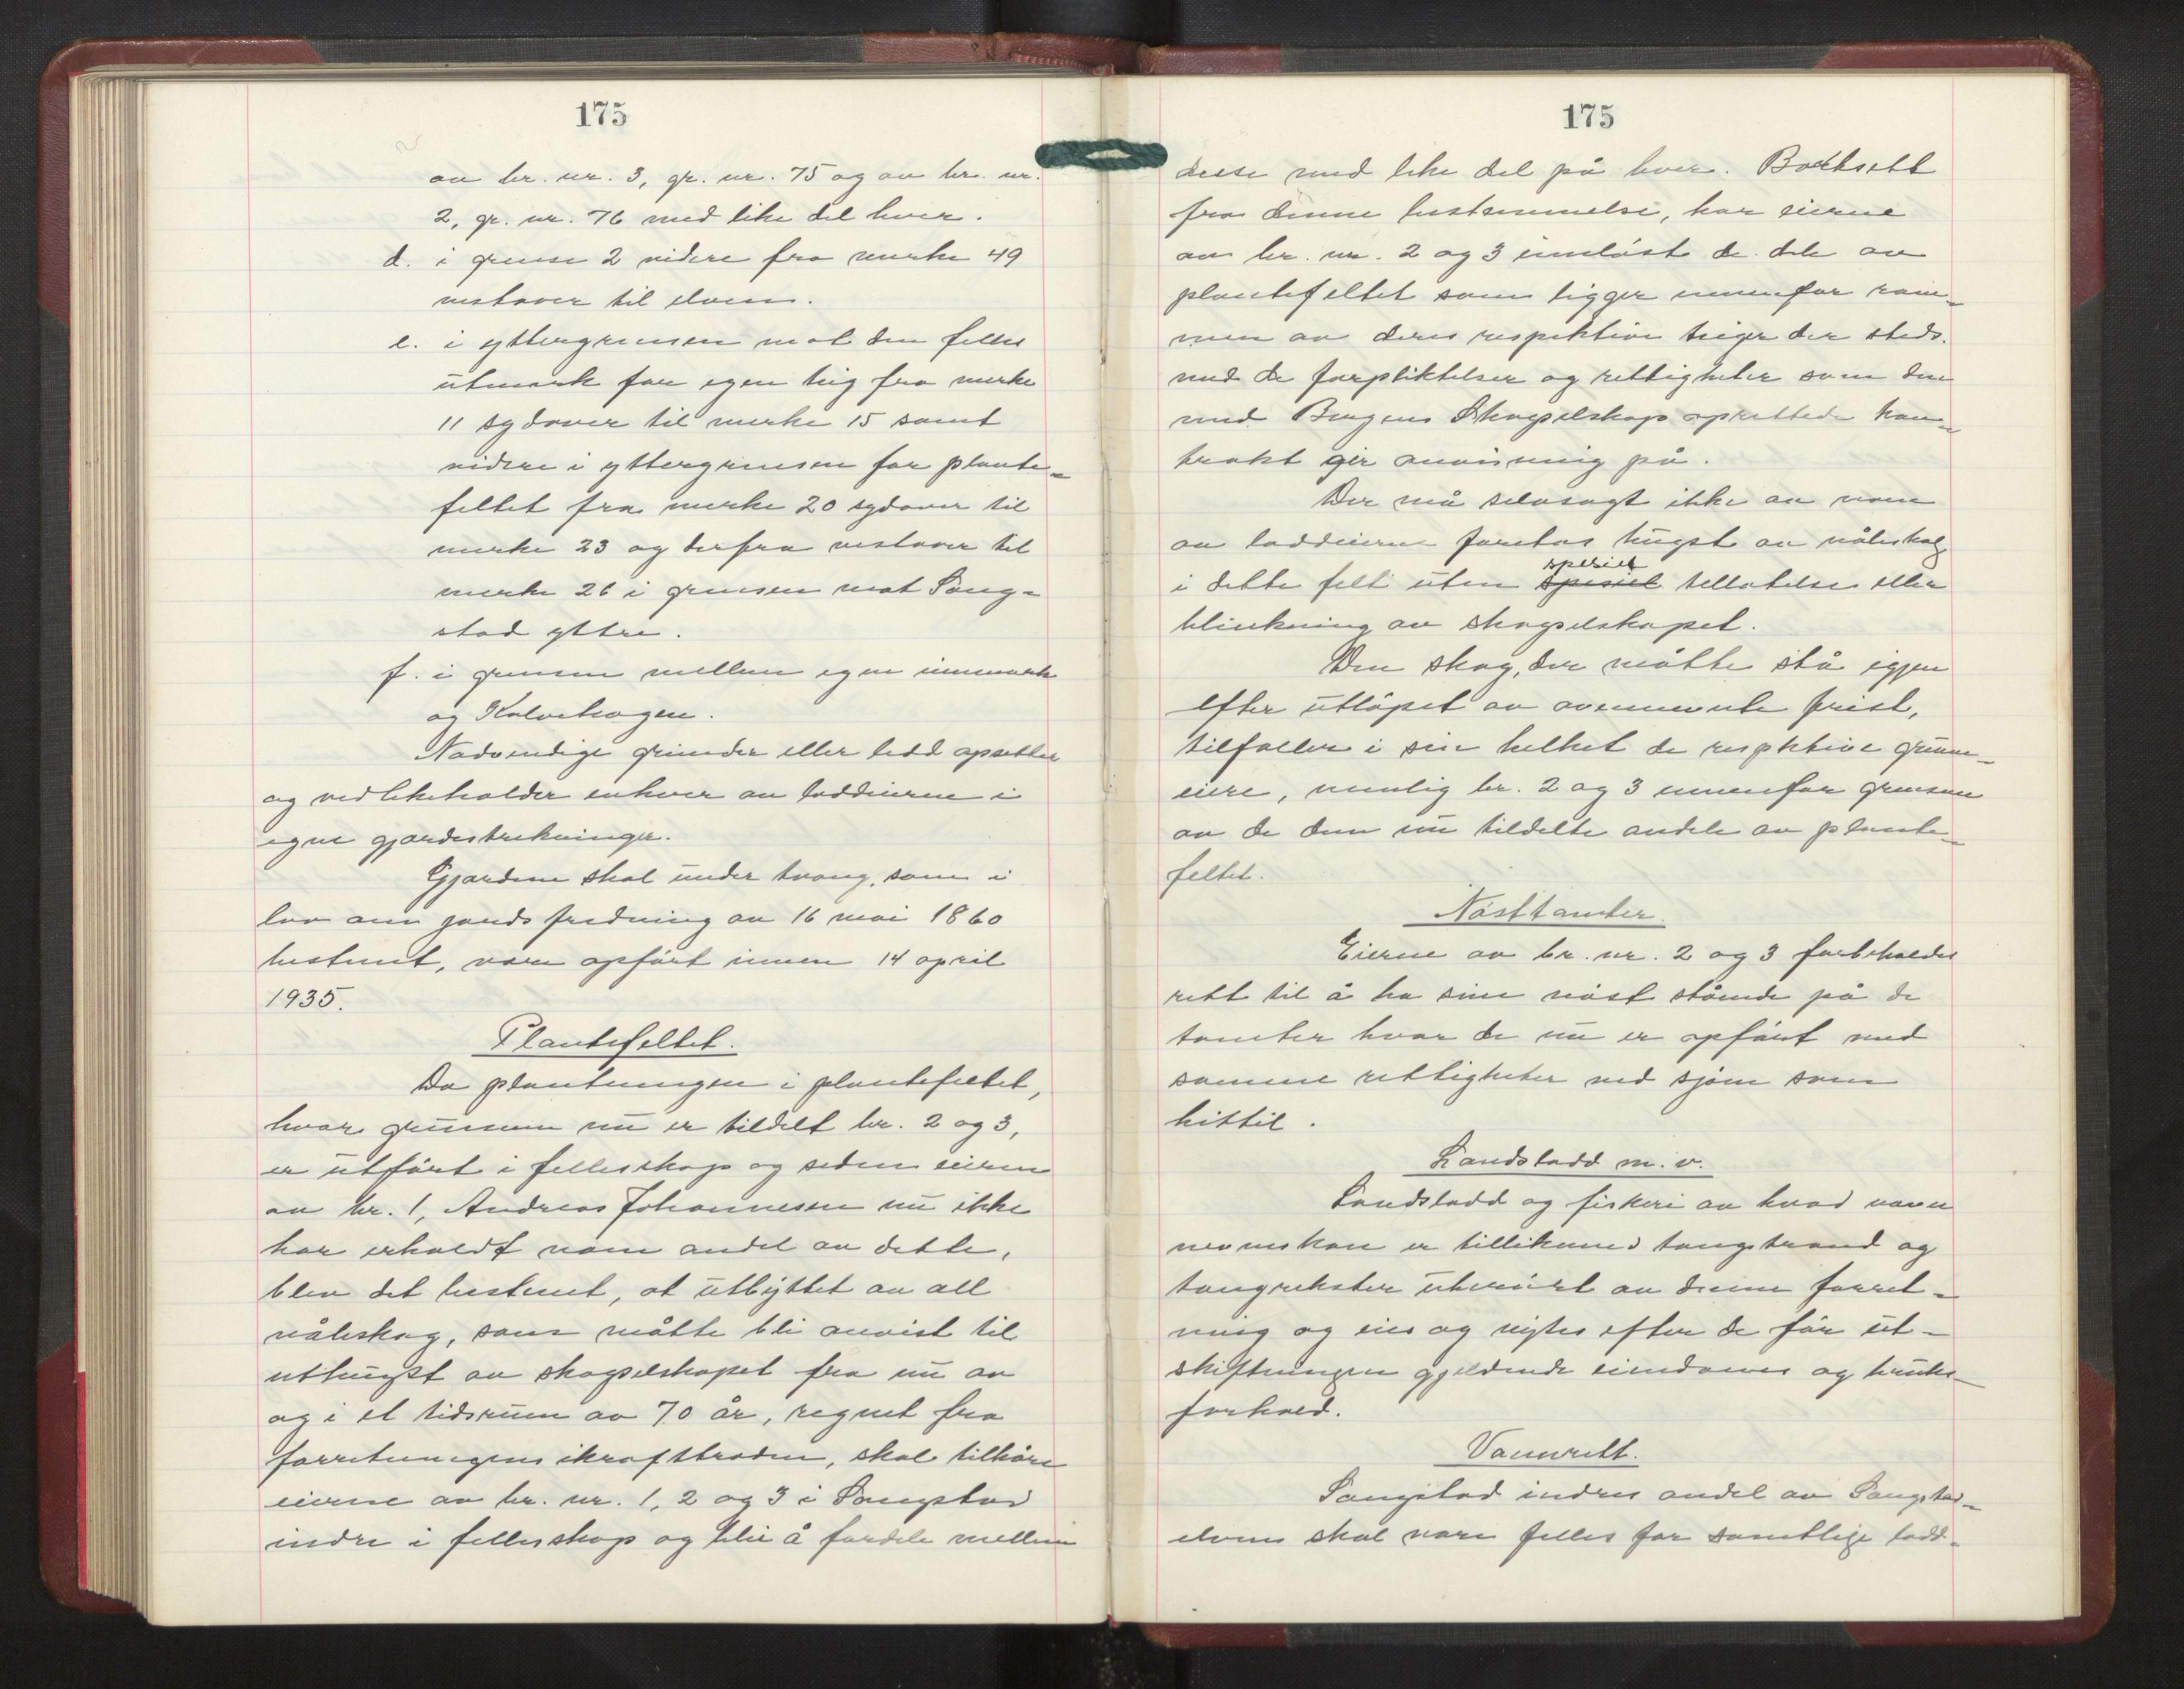 175
av br. nr. 3, gr. nr. 75 og av br. nr.
2, gr. nr. 76 med like del hver.
d. i grense 2 videre fra merke 49
vestover til elven.
e. i yttergrensen mot den felles
utmark for egen teig fra merke
11 sydover til merke 15 samt
videre i yttergrensen for plante-
feltet fra merke 20 sydover til
merke 23 og derfra vestover til
merke 26 i grensen mot Sang-
stad yttre.
f. i grensen mellem egen innmark
og Kalvehagen.
Nødvendige grinder eller ledd opsetter
og vedlikeholder enhver av loddeierne i
egne gjerdestrekninger.
Gjerdene skal under tvang, som i
lov om jords fredning av 16 mai 1860
bestemt, være opført innen 14 april
1935.
Plantefeltet.
Da plantningen i plantefeltet,
hvor grunnen nu er tildelt br. 2 og 3,
er utført i fellesskap og siden eieren
av br. 1, Andreas Johannesen nu ikke
har erholdt noen andel av dette,
blev det bestemt, at utbyttet av all
nåleskog, som måtte bli anvist til
uthugst av skogselskapet fra nu av
og i et tidsrum av 70 år, regnet fra
forretningens ikrafttreden, skal tilhøre
eierne av br. nr. 1, 2 og 3 i Sangstad
indre i fellesskap og blir å fordele mellem
175
disse med like del på hver. Bortsett
fra denne bestemmelse, har eierne
av br. nr. 2 og 3 innløst de dele av
plantefeltet som ligger innenfor ram-
men av deres respektive teiger der steds.
med de forpliktelser og rettigheter som den
med Bergens Skogselskap oprettede kon-
trakt gir anvisning på.
Der må selvsagt ikke av noen
av loddeierne foretas hugst av nåleskog
spesiell
i dette felt uten spesiel tillatelse eller
blinkning av skogselskapet.
Den skog, der måtte stå igjen
efter utløpet av ovennevnte frist,
tilfaller i sin helhet de respktive grunn-
eiere, nemlig br. 2 og 3 innenfor grensene
av de dem nu tildelte andele av plante-
feltet.
Nøsttomter.
Eierne av br. nr. 2 og 3 forbeholdes
rett til å ha sine nøst stående på de
tomter hvor de nu er opført med
samme rettigheter ved sjøen som
hittil.
Landslodd m. v.
Landslodd og fiskeri av hvad navn
nevnes kan er tillikemed tangstrand og
tangrekster uberørt av denne forret-
ning og eies og nytes efter de før ut-
skiftningen gjeldende eiendoms og bruks-
forhold.
Vannrett.
Sangstad indres andel av Sangstad-
elven skal være felles for samtlige lodd-